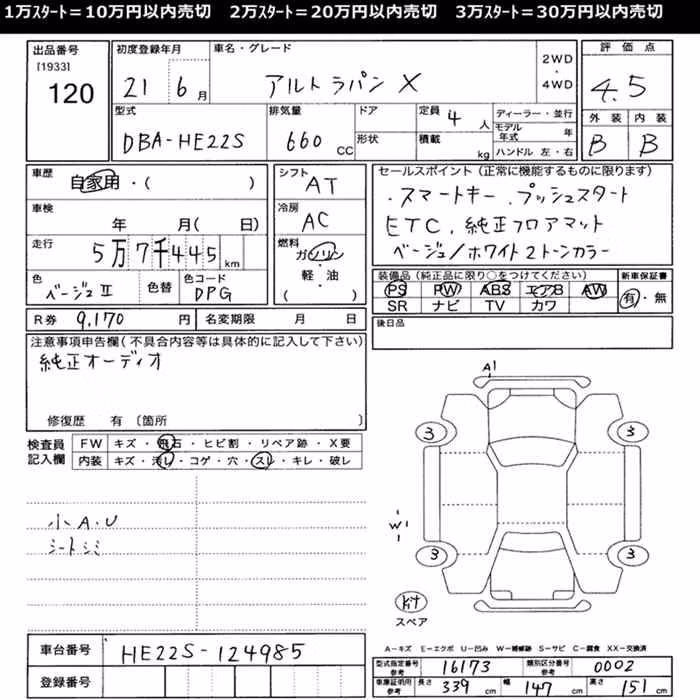 1万スタート＝10万円以内売切　2万スタート＝20万円以内売切　3万スタート＝30万円以内売切
出品番号 [1933] 120
初度登録年月 21 6 月
車名・グレード アルトラパン X
2WD・4WD
評価点 4.5
外装 B 内装 B
型式 DBA-HE22S
排気量 660 CC
ドア 形状
定員 4 人
積載 kg
ディーラー・並行
モデル年式 年
ハンドル 左・右
車歴 自家用・( )
シフト AT
車検 年 月( 日)
冷房 AC
走行 5万7千445 km
燃料 ガソリン・軽・油 ( )
色 ベージュⅡ 色替 色コード DPG
R券 9,170 円 名変期限 月 日
セールスポイント(正常に機能するものに限ります)
・スマートキー ・プッシュスタート
ETC ・純正フロアマット
ベージュ/ホワイト2トーンカラー
装備品(純正品に限り○をつけてください) 新車保証書
PS PW ABS エアB AW 有・無
SR ナビ TV カワ
後日品
注意事項申告欄(不具合内容等は具体的に記入して下さい)
純正オーディオ
修復歴 有 〔箇所 〕
検査員記入欄
FW キズ・飛石・ヒビ割・リペア跡・X要
内装 キズ・汚レ・コゲ・穴・スレ・キレ・破レ
小A・U
シートシミ
A1
3 3
W1
3 3
スペア
A－キズ E－エクボ U－凹み W－補修跡 S－サビ C－腐食 XX－交換済
車台番号 HE22S-124985
登録番号
型式指定番号 参考 16173 類別区分番号 参考 0002
車庫証明用 参考 長さ 339 cm 幅 147 cm 高さ 151 cm